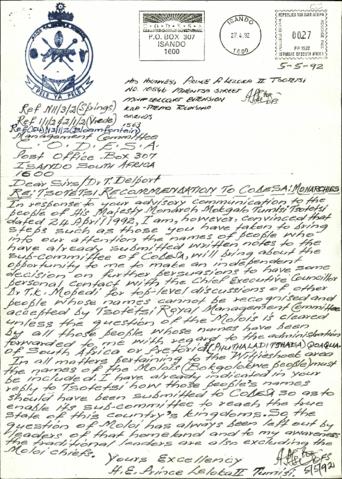 CODESA
P.O. BOX 307
ISANDO
1600
ISANDO
27.4.92
1600
0027
5-5-92
His Highness, Prince A Lekoa II Tsotetsi
Extension
Ref N11/3/2 (Springs)
Ref 1/1/2/2/1/2 (Vrede)
(Bloemfontein)
Management Committee
C. O. D. E. S. A.
Post Office Box 307
Isando South Africa
1600
Dear Sirs/Dr T. Delport
Re: Tsotetsi Recommendation to Codesa: Monarchies
In response to your advisory communication to the
people of His Majesty Monarch Mokgalo Tumisi Tsotetsi
dated 24 April 1992, I am, however, convinced that
steps such as those you have taken to bring
into our attention the names of people who
have already submitted written notes to the
sub-committee of Codesa, will bring about the
oportunity to me to make an independent
decision on further persuasions to have some
personal contact with the Chief Executive Councillor
Dr T.K. Mopeli for top-level discussions of other
people whose names cannot be recognised and
accepted by Tsotetsi Royal Management Committee
unless the question of the Molois is cleared
by all those people whose names have been
forwarded to me with regard to the administration
of South Africa or Pretoria (Phuthaditjhaba) Qwaqwa
In all matters pertaining to the Witsieshoek area
the names of the Moloi (Bakgolokwe people) must
be included. I have already indicated in your
reply to Tsotetsi how those people's names
should have been submitted to Codesa so as to
enable its sub-committee to reach the true
state of this country's kingdoms. So, the
question of Moloi has always been left out by
leaders of that homeland and to my awareness
the traditional leaders are also excluding the
Moloi chiefs.
Yours Excellency
H.E. Prince Lekoa II Tumisi,
5/5/92